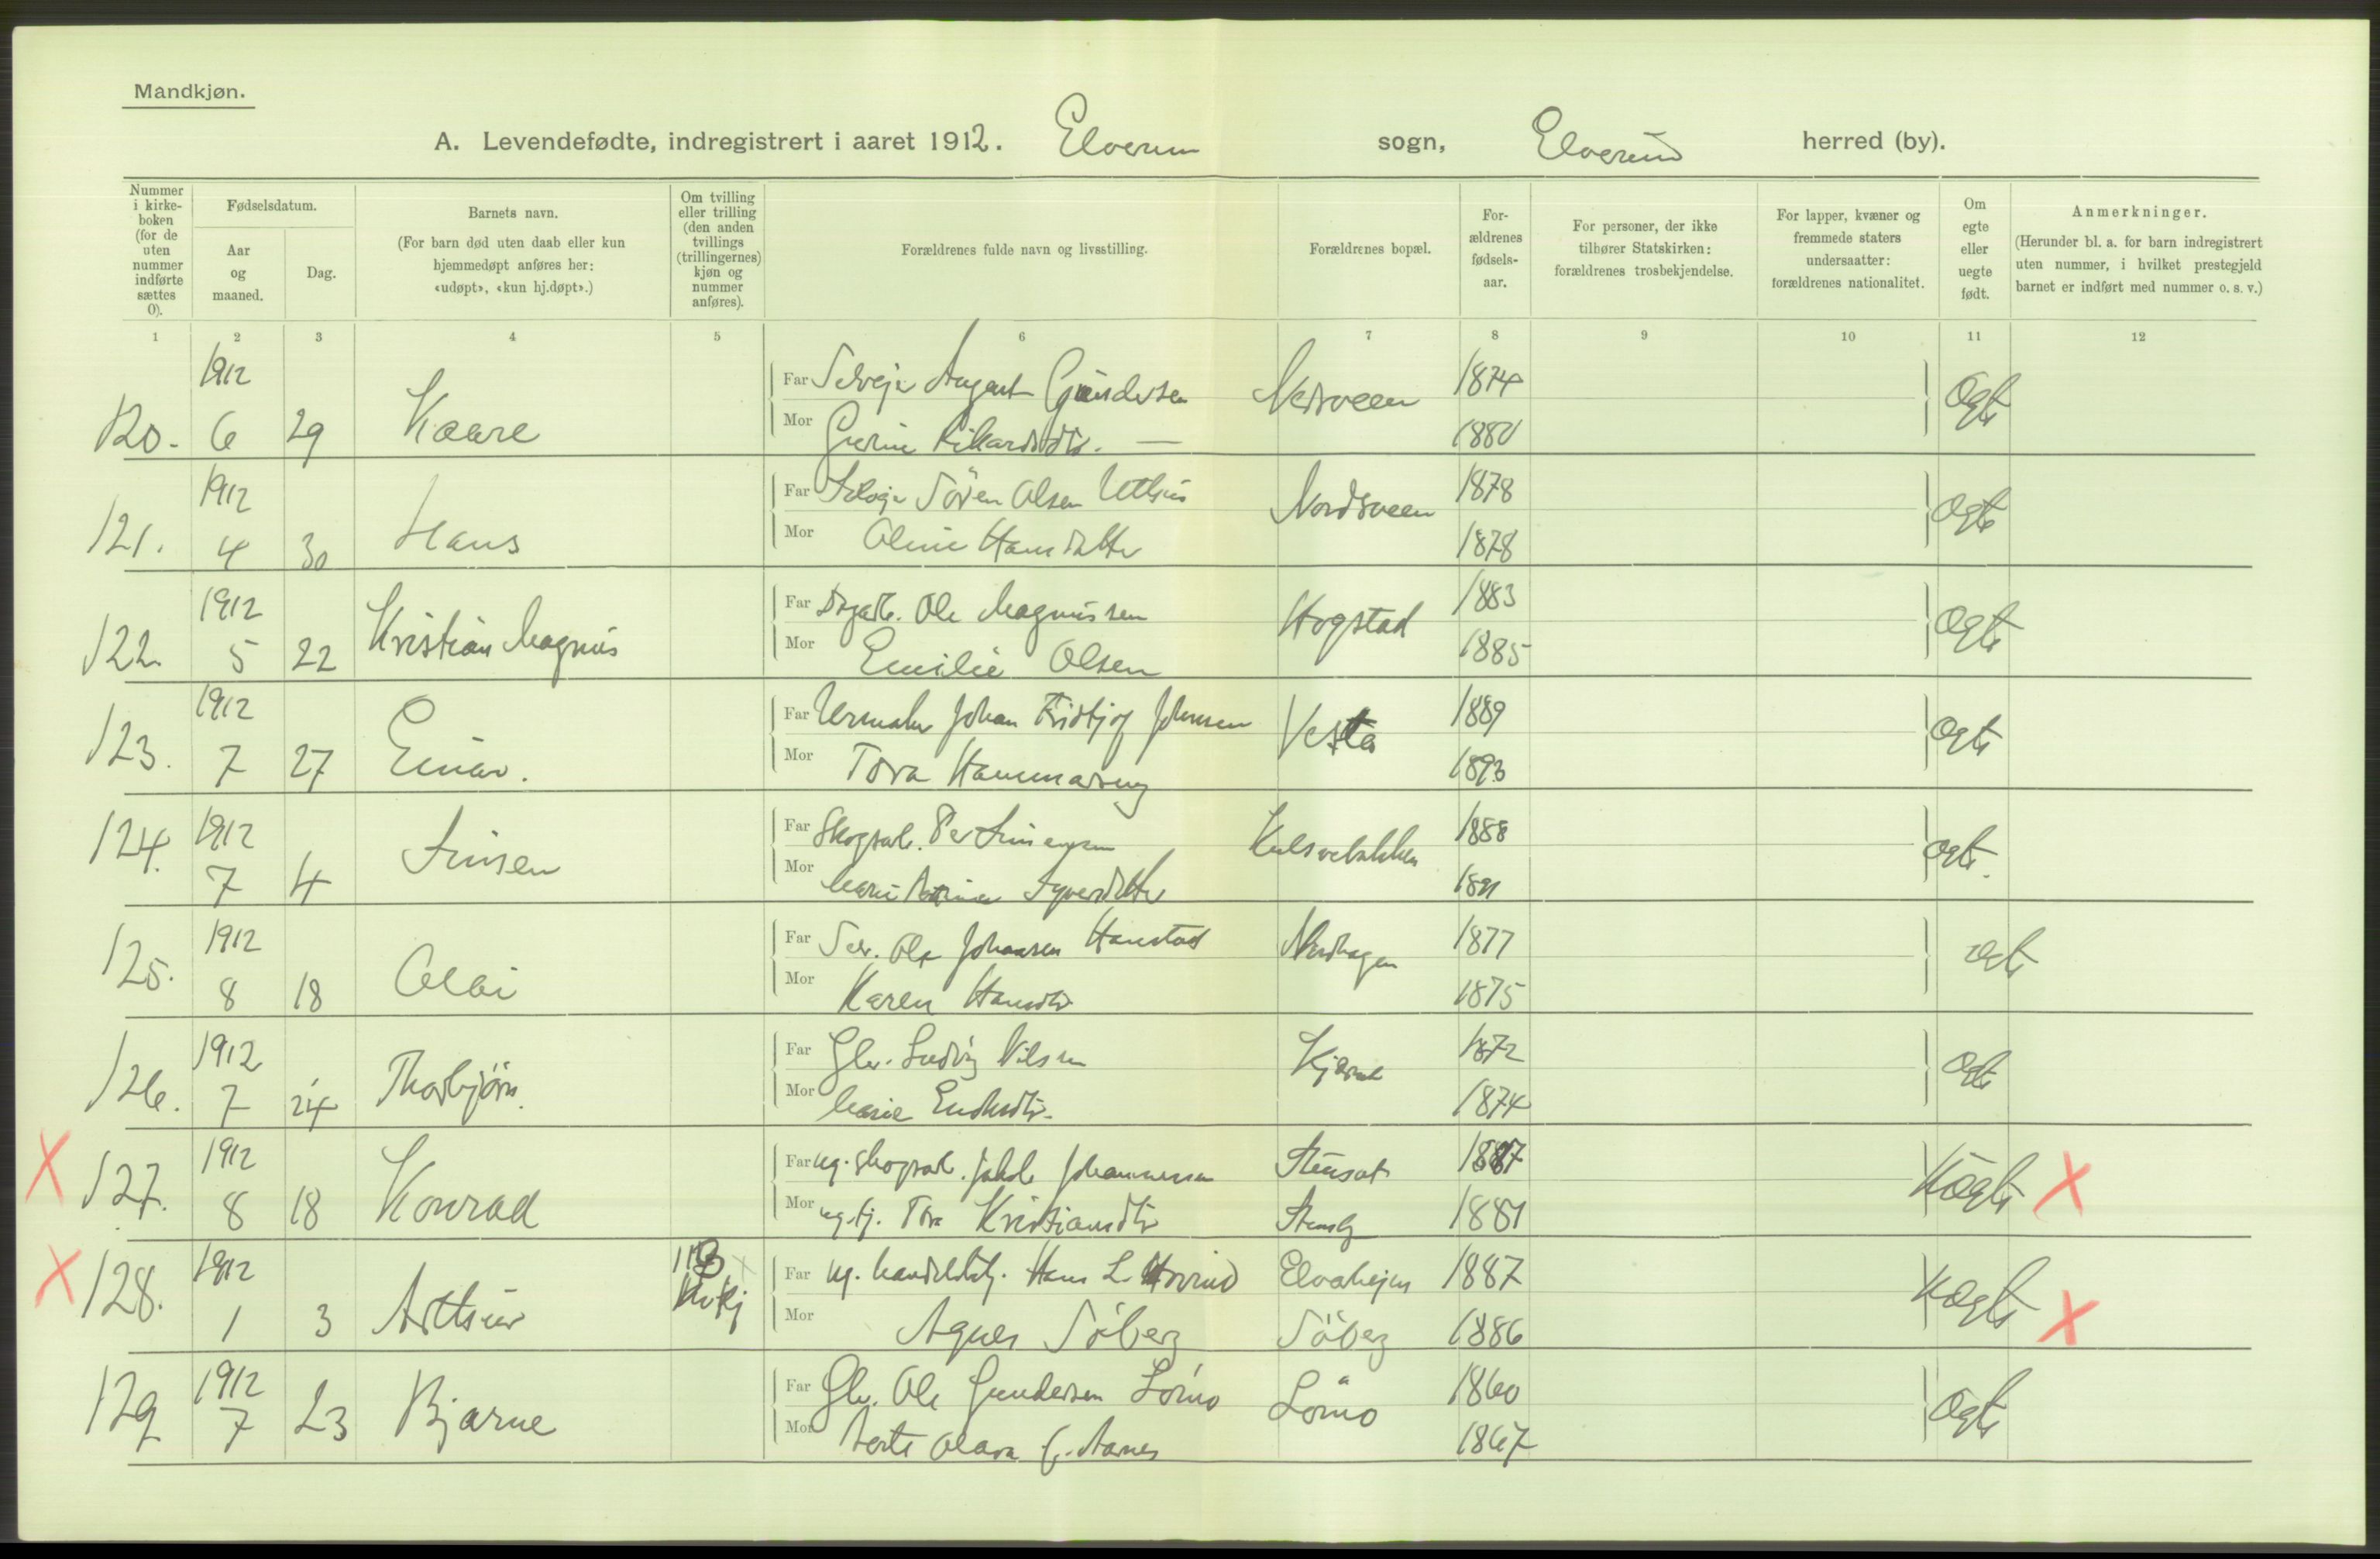 Mandkjøn.
A. Levendefødte, indregistrert i aaret 1912. Elverum sogn, Elverum herred (by).
Nummer i kirke-boken (for de uten nummer indførte sættes 0).
Fødselsdatum.
Aar og maaned.
Dag.
Barnets navn.
(For barn død uten daab eller kun hjemmedøpt anføres her: «udøpt», «kun hj.døpt».)
Om tvilling eller trilling (den anden tvillings (trillingernes) kjøn og nummer anføres).
Forældrenes fulde navn og livsstilling.
Forældrenes bopæl.
For-ældrenes fødsels-aar.
For personer, der ikke tilhører Statskirken: forældrenes trosbekjendelse.
For lapper, kvæner og fremmede staters undersaatter: forældrenes nationalitet.
Om egte eller uegte født.
Anmerkninger.
(Herunder bl. a. for barn indregistrert uten nummer, i hvilket prestegjeld barnet er indført med nummer o. s. v.)
1 2 3 4 5 6 7 8 9 10 11 12
1912 Far Selvejr August Gundersen 1874
120. 6 29 Kaare Mor Gurine Rikardsdtr. — 1880 Ogte
1912 Far Søren Olsen 1878
121. 4 30 Hans Mor Oline Hansdatter Nordsveen 1878 Ogte
1912 Far Ole Magnussen 1883
122. 5 22 Kristian Magnus Mor Emilie Olsen Hogstad 1885 Ogte
1912 Far Urmaker Johan Fridtjof Johnsen 1889
123. 7 27 Einar. Mor Tora Hammareng Vestad 1893 Ogte
124. 1912 Far Skogsarb. Per Simensen 1888
7 4 Simen Mor Syversdatter 1891 Ogte.
1912 Far Selv. Ole Johansen Hanstad 1877
125. 8 18 Olai Mor Karen Hansdtr Nordhagen 1875 Ogte
1912 Far Gbr. Ludvig Nilsen 1872
126. 7 24 Thorbjørn. Mor Marie 1874 Ogte
X 1912 Far ug. skogsarb. Jakob Johannessen 1887 X
127. 8 18 Konrad Mor ug. tj. Tora Kristiansdtr 1881 Uogte
X 128. 1912 113 Far ug. Hans L. Elvahejen 1887
1 3 Arthur Kvkj Mor Agnes Söberg Söberg 1886 Uogte X
1912 Far Gbr. Ole Gundersen Lömo 1860
129 7 23 Bjarne Mor Berte Olava f. Aanes Lömo 1867 Ogte